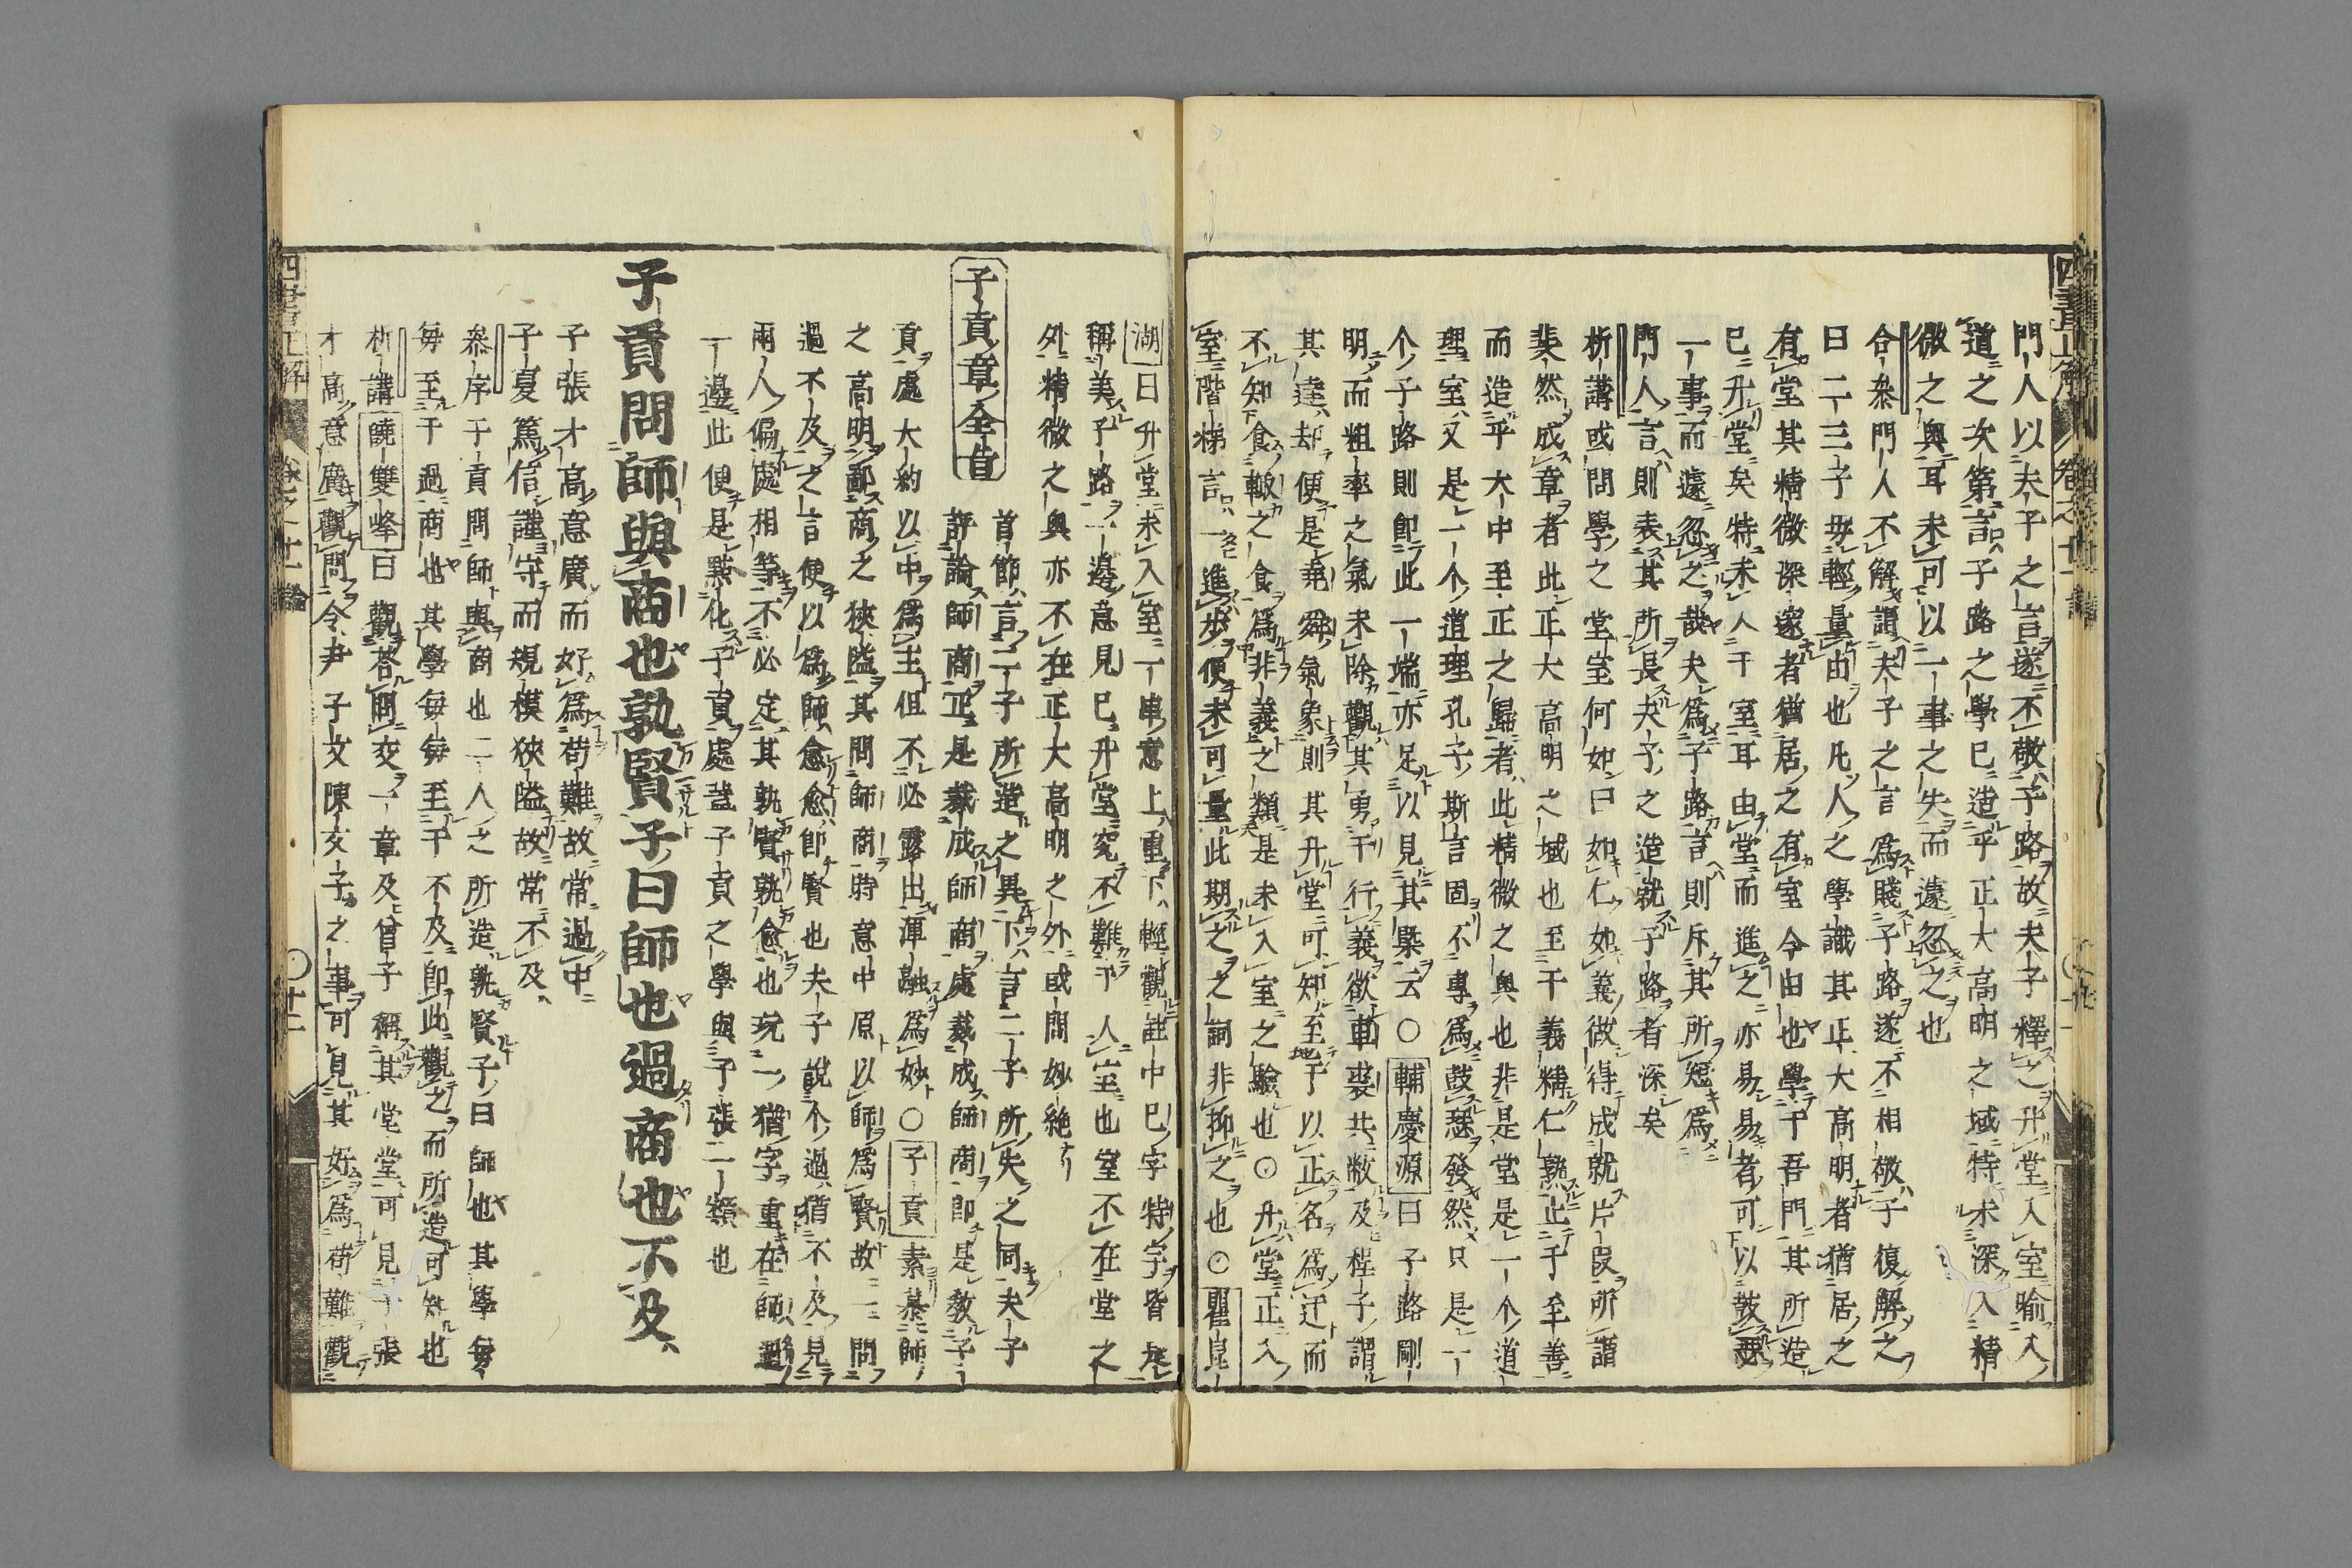 門人以夫子之言遂不敬子路故夫子釋之升堂入室喻入
道之次第言子路之學已造乎正大高明之域特未深入精
微之奥耳未可以一事之失而遽忽之也
合參門人不解謂夫子之言為賤子路遂不相敬子復解之
曰二三子毋輕量由也凡人之學識其正大高明者猶居之
有堂其精微深邃者猶居之有室今由也學于吾門其所造
已升堂矣特未入于室耳由堂而進之亦易易者可以鼓瑟
一事而遽忽之哉夫為子路言則斥其所短為
門人言則表其所長夫子之造就子路者深矣
析講或問學之堂室何如曰如仁如義做得成就片段所謂
斐然成章者此正大高明之域也至于義精仁熟止于至善
而造乎大中至正之歸者此精微之奥也非是堂是一个道
理室又是一个道理孔子斯言固不專為鼓瑟發然只是一
个子路則即此一端亦足以見其槩云○輔慶源曰子路剛
明而粗率之氣未除觀其勇于行義欲車裘共敝及程子謂
其達却便是堯舜氣象則其升堂可知至于以正名為迂而
不知食輒之食為非義之類是未入室之驗也○升堂正入
室階梯言一進步便未可量此期之之詞非抑之也○瞿昆
湖曰升堂未入室一串意上重下輕觀註中已字特字皆是
稱美子路一邊意見已升堂究不難于入室也室不在堂之
外精微之奥亦不在正大高明之外或問妙絶
子貢章全旨
首節言二子所造之異下言二子所失之同夫子
評論師商正是裁成師商處裁成師商即是教子
貢處大約以中為主但不必露出渾融為妙○子貢素慕師
之高明鄙商之狹隘其問師商時意中原以師為賢故一問
過不及之言便以為師愈愈即賢也夫子說个過猶不及見
兩人偏處相等不必定其孰賢孰愈也玩一猶字重在師過
一邊此便是點化子貢處葢子貢之學與子張二一類也
子貢問師與商也孰賢子曰師也過商也不及
子張才高意廣而好為苟難故常過中
子夏篤信謹守而規模狹隘故常不及
參序子貢問師與商也二人之所造孰賢子曰師也其學每
每至于過商也其學每每至于不及即此觀之而所造可知也
析講饒雙峰曰觀答問交一章及曾子稱其堂堂可見子張
才高意廣觀問令尹子文陳文子之事可見其好為苟難觀
四書正解
卷之十一論
○十二